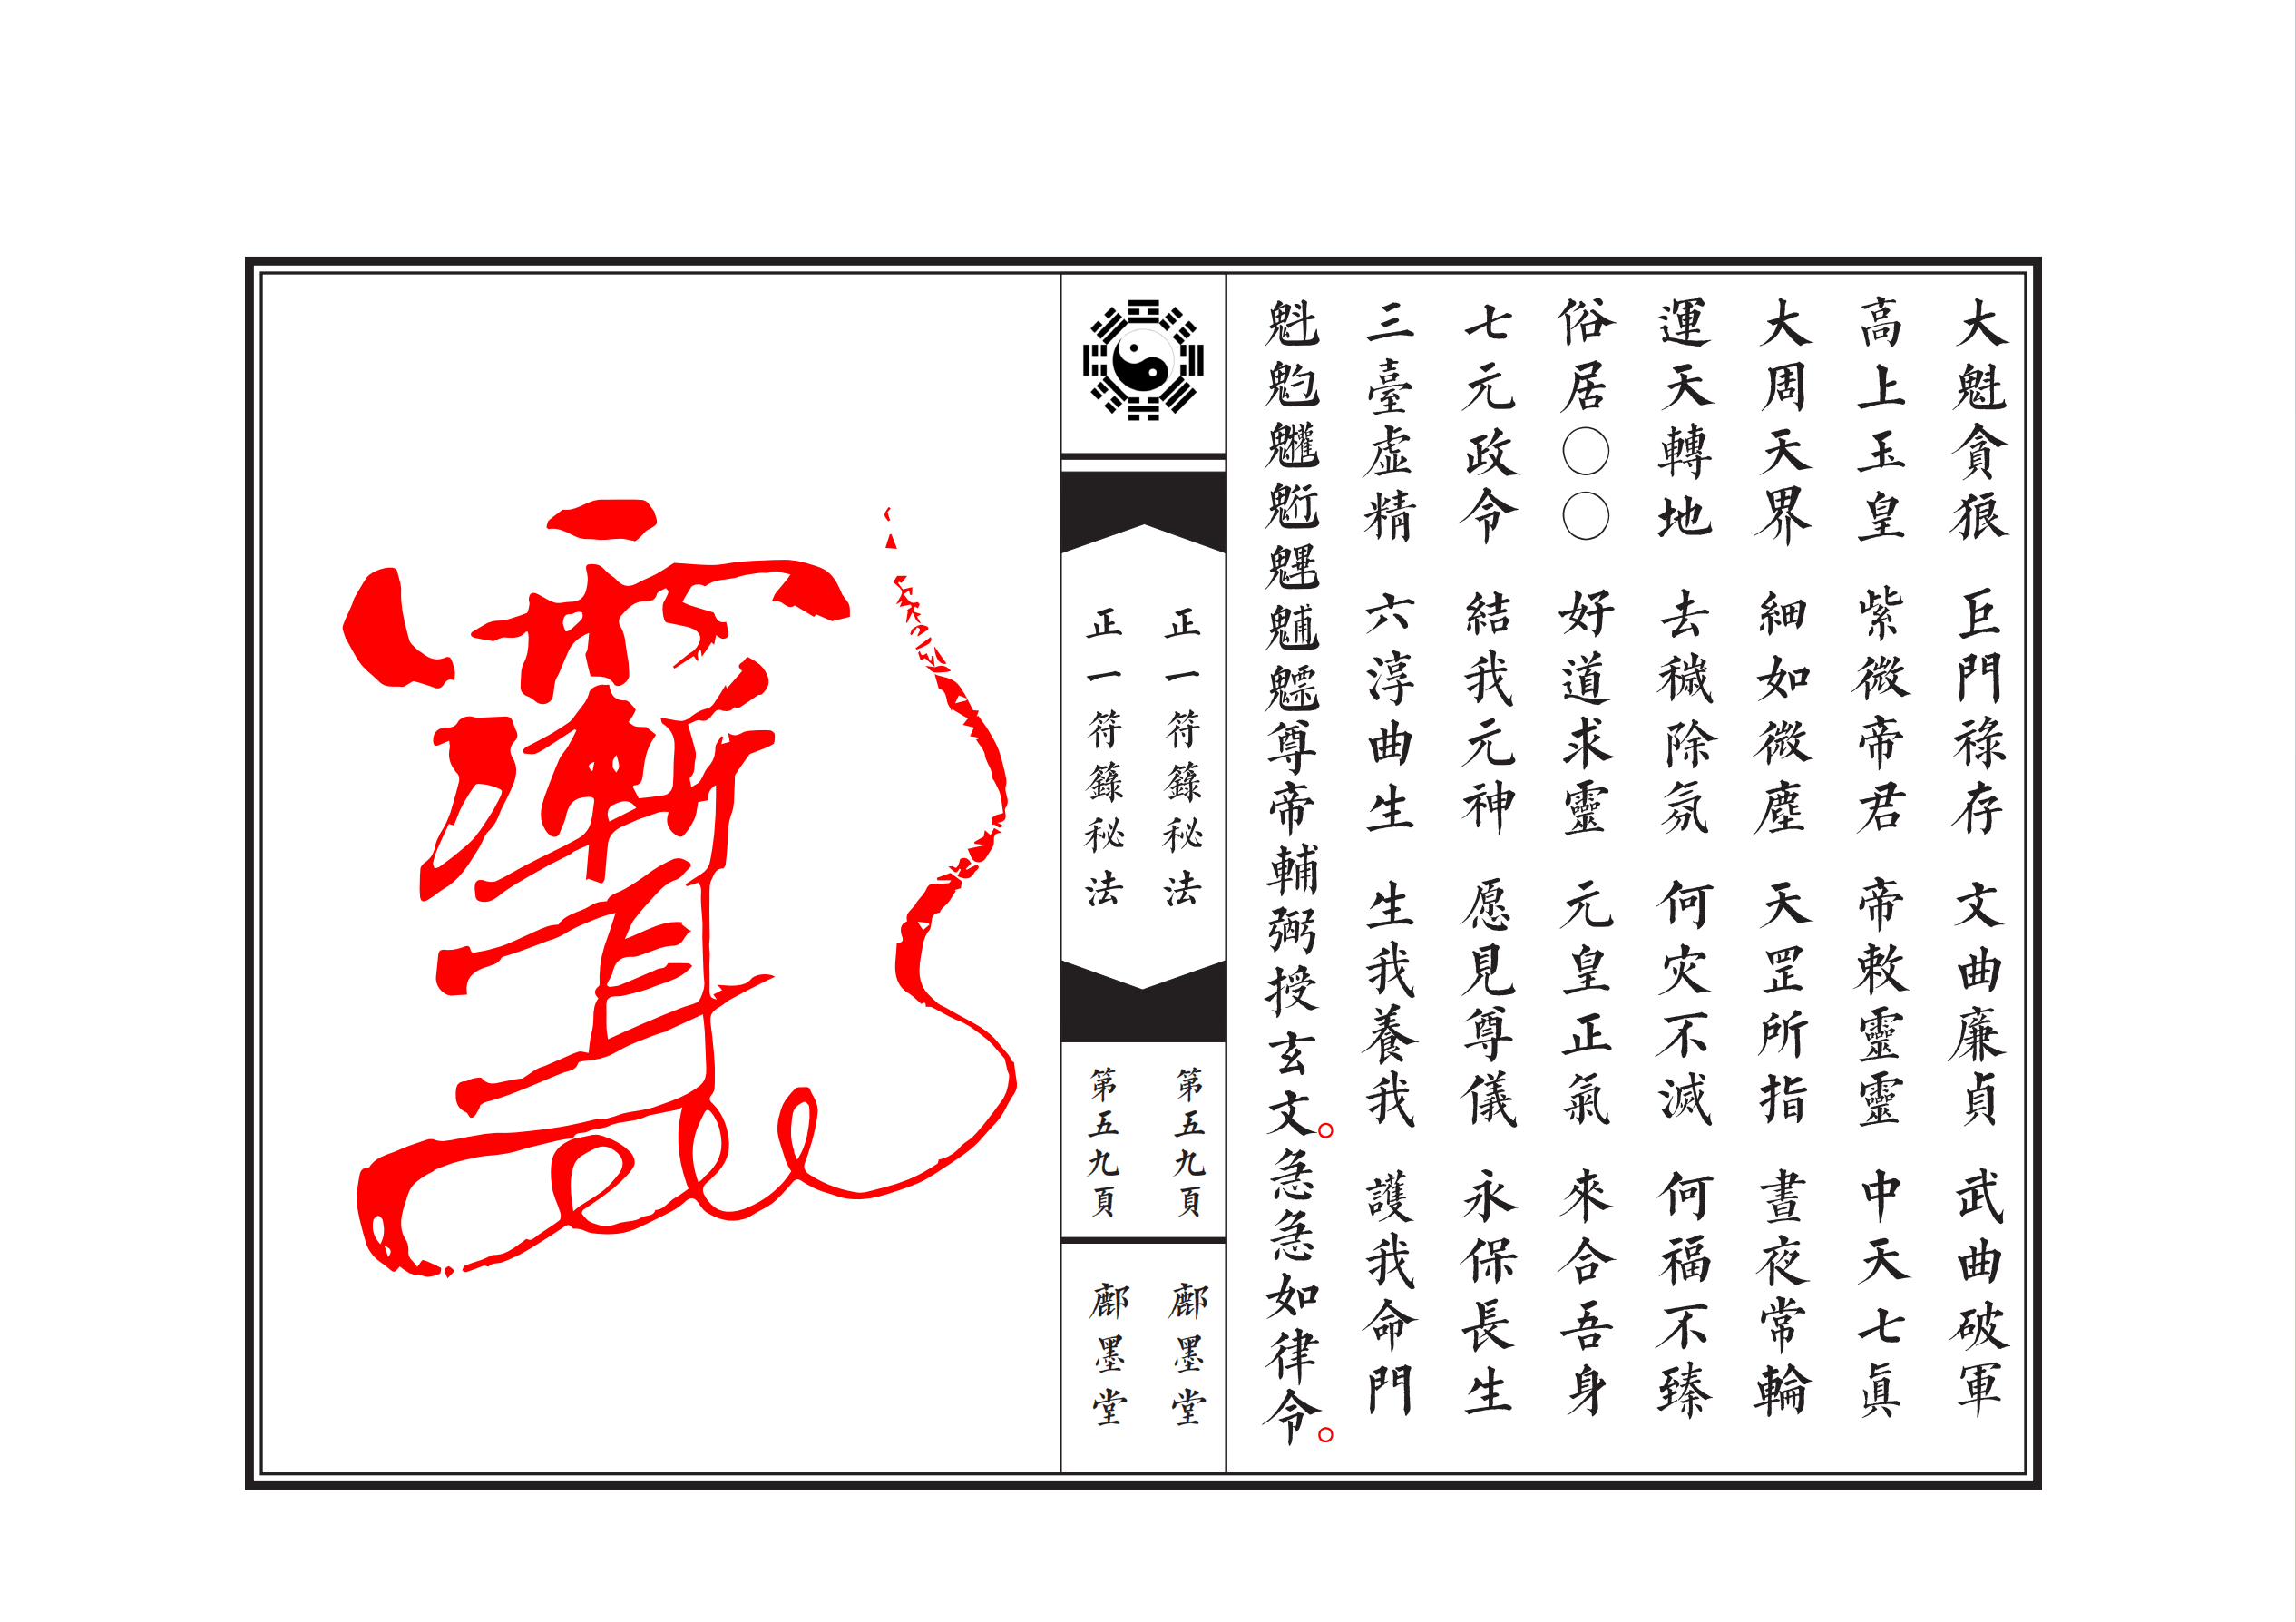 大魁貪狼 巨門祿存 文曲廉貞 武曲破軍
高上玉皇 紫微帝君 帝敕靈靈 中天七眞
大周天界 細如微塵 天罡所指 晝夜常輪
運天轉地 去穢除氛 何灾不滅 何福不臻
俗居〇〇 好道求靈 元皇正氣 來合吾身
七元政令 結我元神 愿見尊儀 永保長生
三臺虛精 六淳曲生 生我養我 護我命門
魁𩲃𩵄䰢魓𩳐魒尊帝輔弼授玄文。急急如律令。
正一符籙秘法
正一符籙秘法
第五九頁
第五九頁
鄜墨堂
鄜墨堂